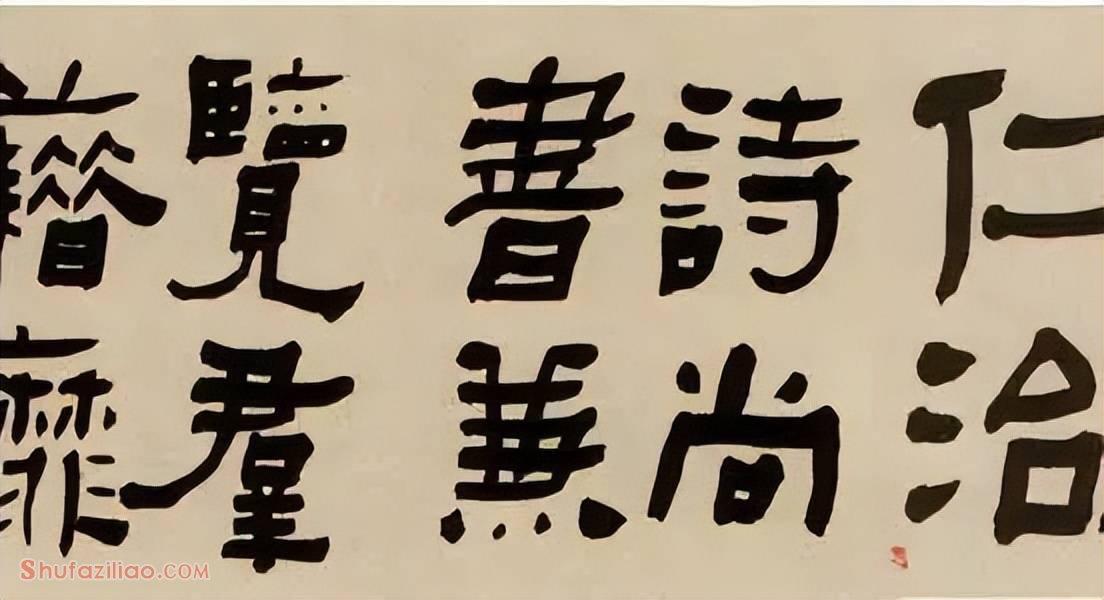 仁治
詩尚
書兼
覽羣
籍靡
Shufaziliao.COM